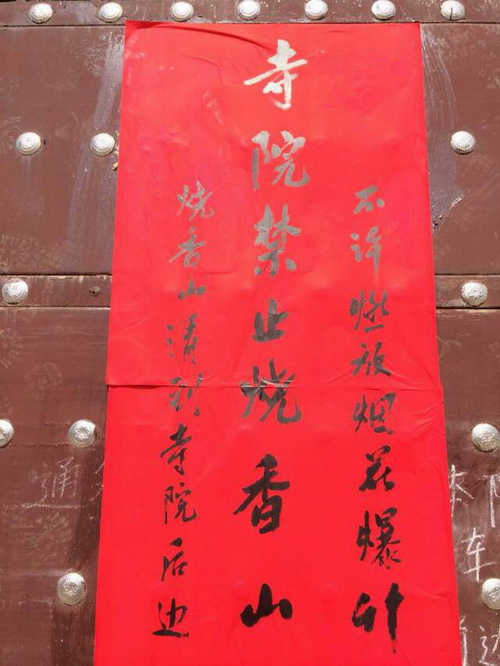 不许燃放烟花爆竹
寺院禁止烧香山
烧香山请到寺院后边
通
车